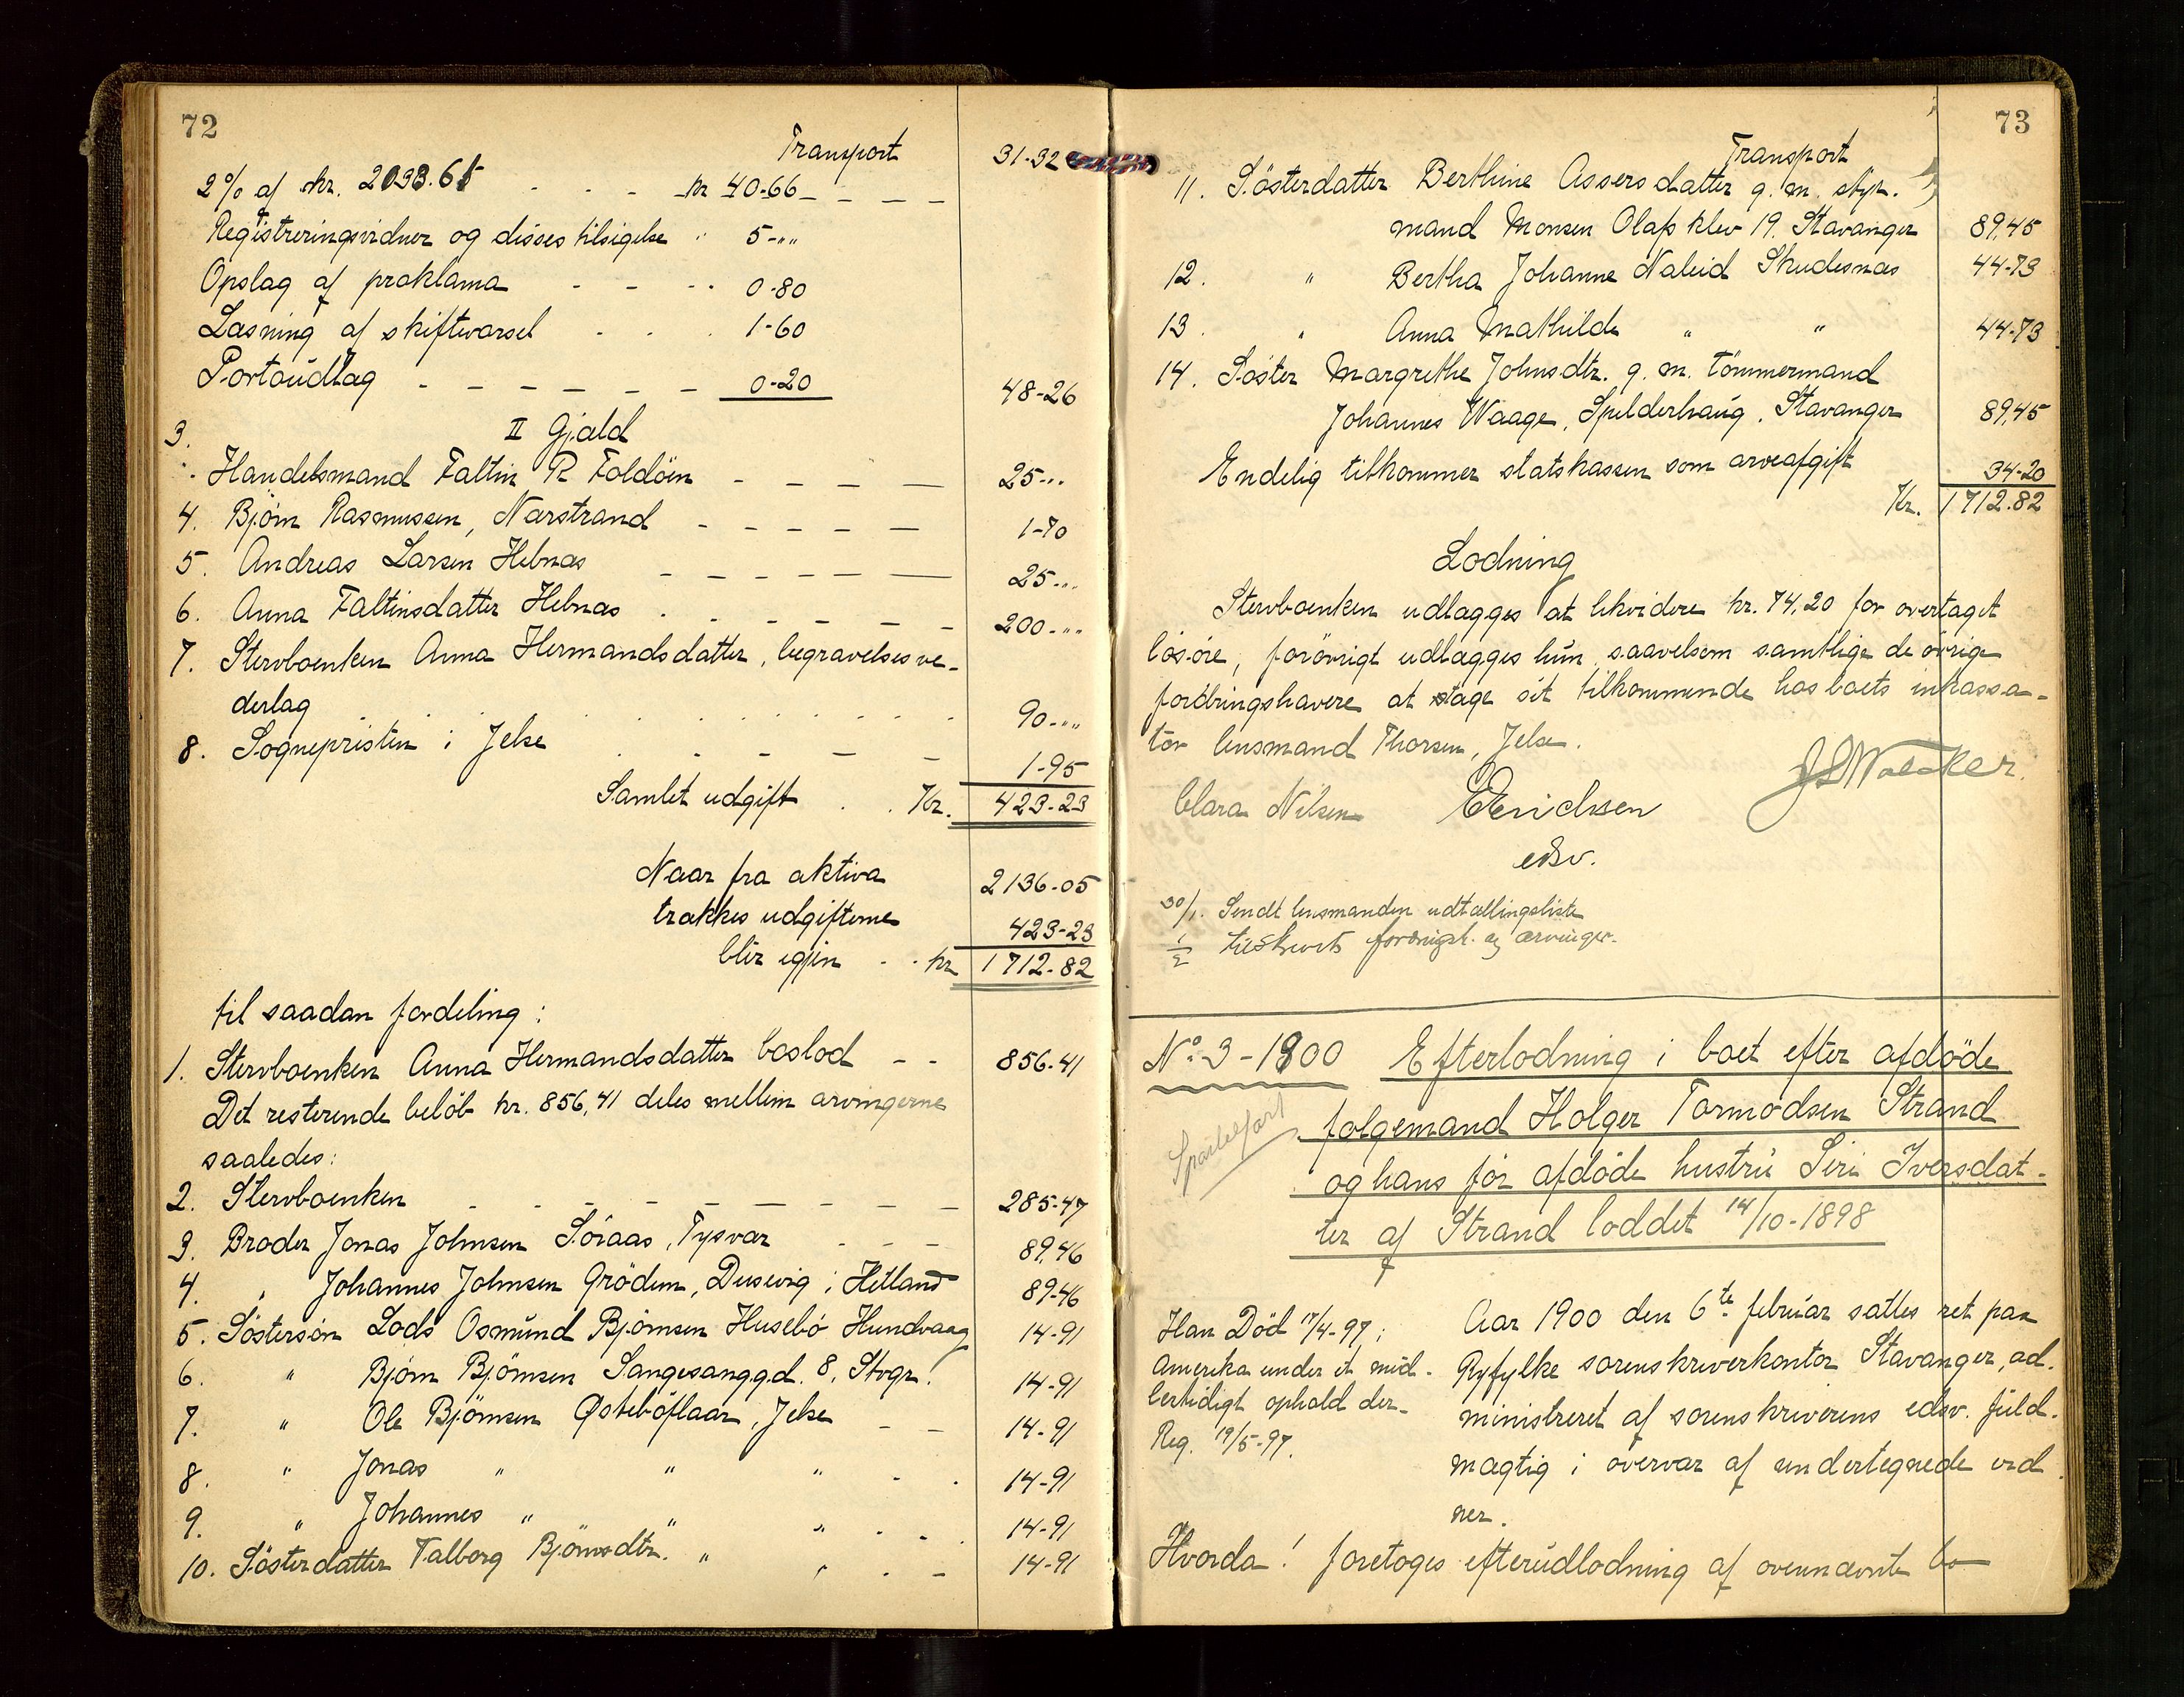 72
Transport 31-32
2% af kr. 2093.65 - - - kr 40-66 - - - -
Registreringsvidner og disses tilsigelse " 5-""
Opslag af proklama - - - 0-80
Læsning af skiftvarsel - - - 1-60
Portoudlæg - - - - - - 0-20 48-26
3. II Gjæld
Handelsmand Faltin R Foldöen - - - - 25-""
4. Björn Rasmussen, Nærstrand - - - - - 1-70
5. Andreas Larsen Hebnæs - - - - - - 25-""
6. Anna Faltinsdatter Hebnæs - - - - - - 200-""
7. Stervboenken Anna Hermandsdatter, begravelsesve-
derlag 90-""
8. Sogneprésten i Jelse - - - - 1-95
Samlet udgift . . Kr. 423-23
Naar fra aktiva 2136-05
trækkes udgifterne 423-23
blir igjen . . kr 1712-82
til saadan fordeling:
1. Stervboenken Anna Hermandsdatter boslod - - 856-41
Det resterende belöb kr. 856,41 deles mellem arvingerne
saaledes:
2. Stervboenken - - - - - - - - 285-47
3. Broder Jonas Johnsen Söraas, Tysvær - - - 89,46
4. " Johannes Johnsen Grödem, Dusevig i Hetland 89-46
5. Söstersön Lods Osmund Björnsen Husebö Hundvaag 14-91
6. " Björn Björnsen Sangesanggd. 8, Stvgr. 14-91
7. " Ole Björnsen Østeböflaar, Jelse - - 14-91
8. " Jonas " " " - . 14-91
9. " Johannes " " " - - 14-91
10. Sösterdatter Talborg Björnsdtr. " " - - 14-91
73
Transport
11. Sösterdatter Berthine Assersdatter g. m. styr-
mand Monsen Olafs klev 19. Stavanger 89,45
12. " Bertha Johanne Naleid Skudesnæs 44-73
13. " Anna Mathilde " " 44-73
14. Söster Margrethe Johnsdtr. g. m. tömmermand
Johannes Waage, Spilderhaug, Stavanger 89,45
Endelig tilkommer statskassen som arveafgift 34-20
Kr. 1712.82
Lodning
Stervboenken udlægges at likvidere kr. 74,20 for overtaget
lösöre, forövrigt udlægges hun saavelsom samtlige de övrige
fordringshavere at tage sit tilkommende hos boets inkassa-
tor lensmand Thorsen, Jelse.
Clara Nilsen EErichsen
edsv.
30/1. Sendt lensmanden udtællingsliste
1/2 tilskrevet fordrigsh. og arvinger.
No. 3-1900 Efterlodning i boet efter afdöde
folgemand Holger Tormodsen Strand
og hans för afdöde hustru Siri Iversdat-
ter af Strand loddet 14/10-1898
Han Död 17/4-97 i
Amerika under et mid-
lertidigt ophold der-
Reg. 19/5-97.
Aar 1900 den 6te februar sattes ret paa
Ryfylke sorenskriverkontor Stavanger, ad-
ministreret af sorenskriverens edsv. fuld-
mægtig i overvær af undertegnede vid
ner.
Hvorda! foretoges efterudlodning af ovennævnte bo